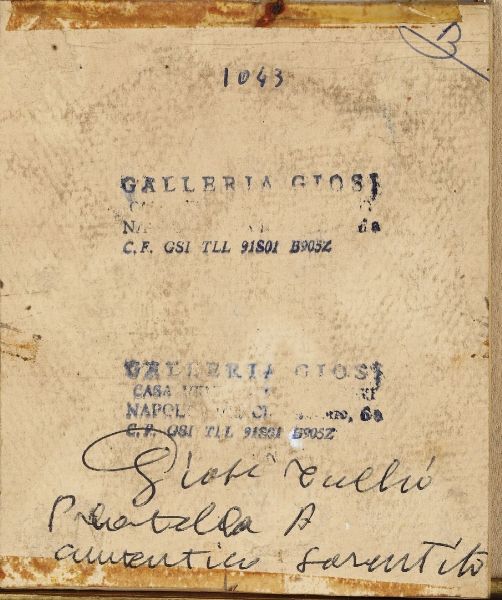 1043
B
GALLERIA GIOSI
6a
C.F. GSI TLL 91S01 B905Z
GALLERIA GIOSI
CASA
NAPOLI 6a
C.F. GSI TLL 91S01 B905Z
Giosi Tullio
Pratella A
autentico garantito